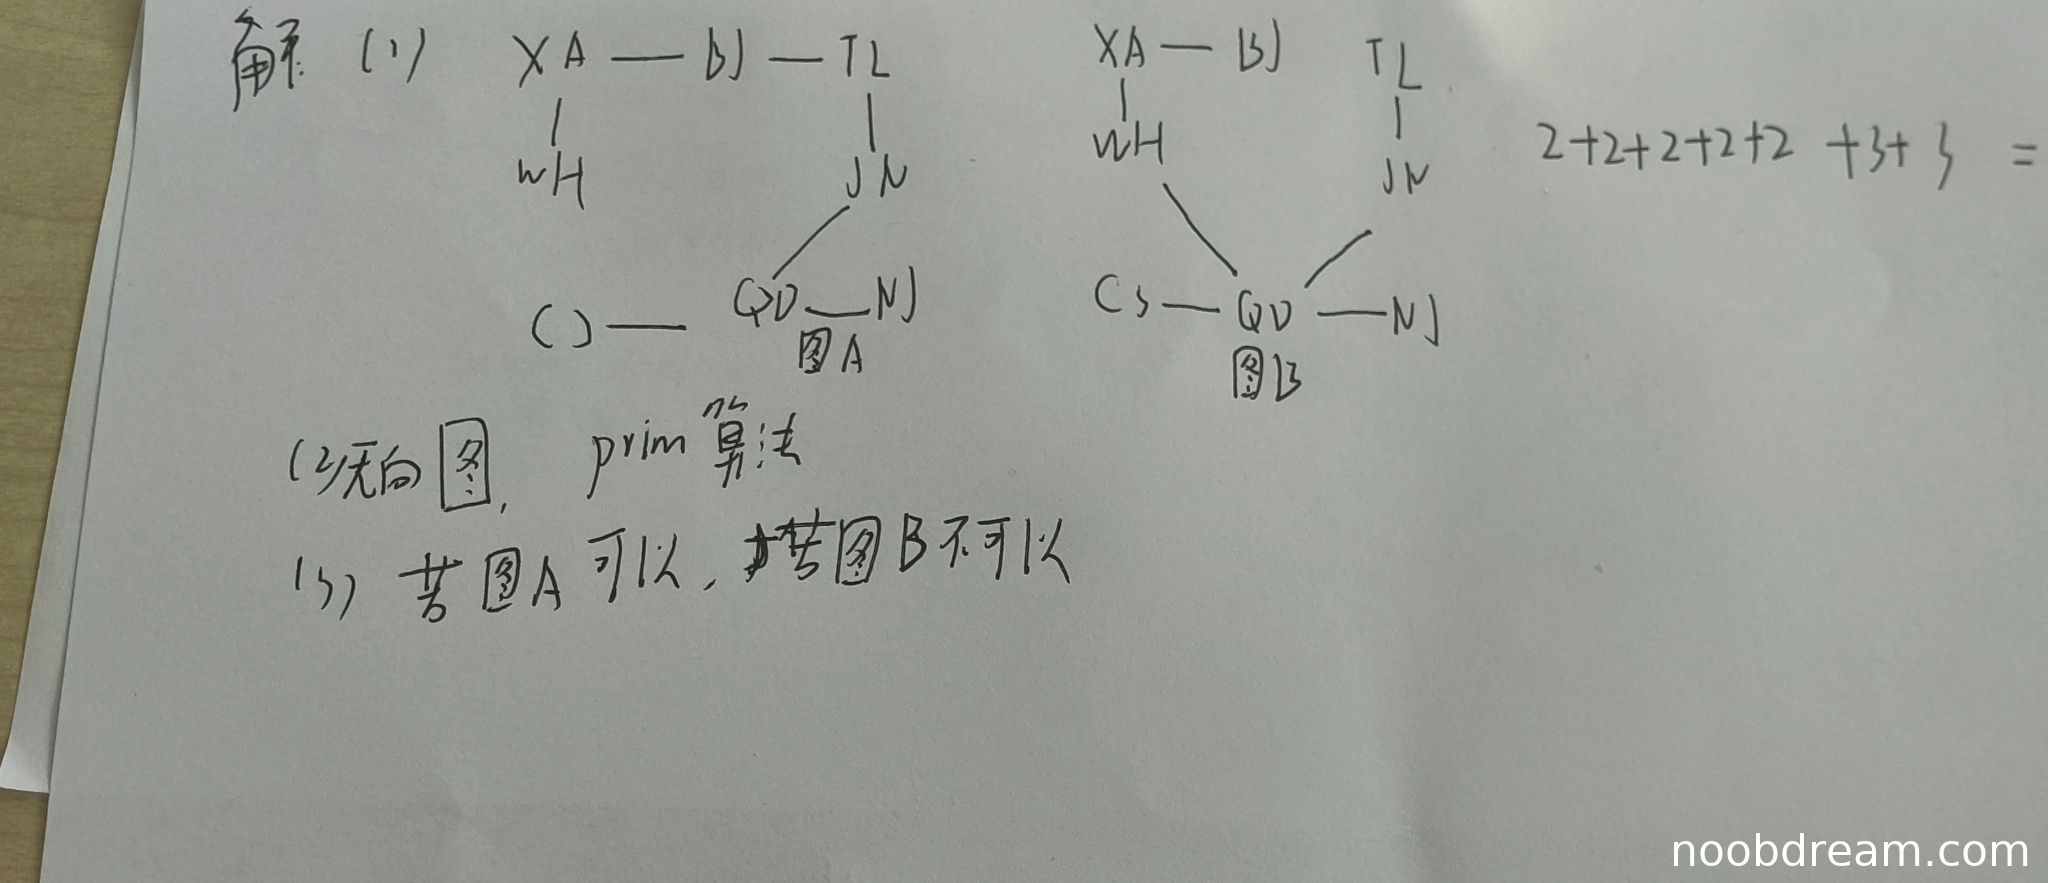 解 (1) XA — BJ — TL
XA — BJ TL
WH JN
WH JN
2+2+2+2+2 +3+3 =
CS — QD — NJ
CS — QD — NJ
图A
图B
(2)无向图, prim算法
(3) 若图A可以, 若图B不可以
noobdream.com